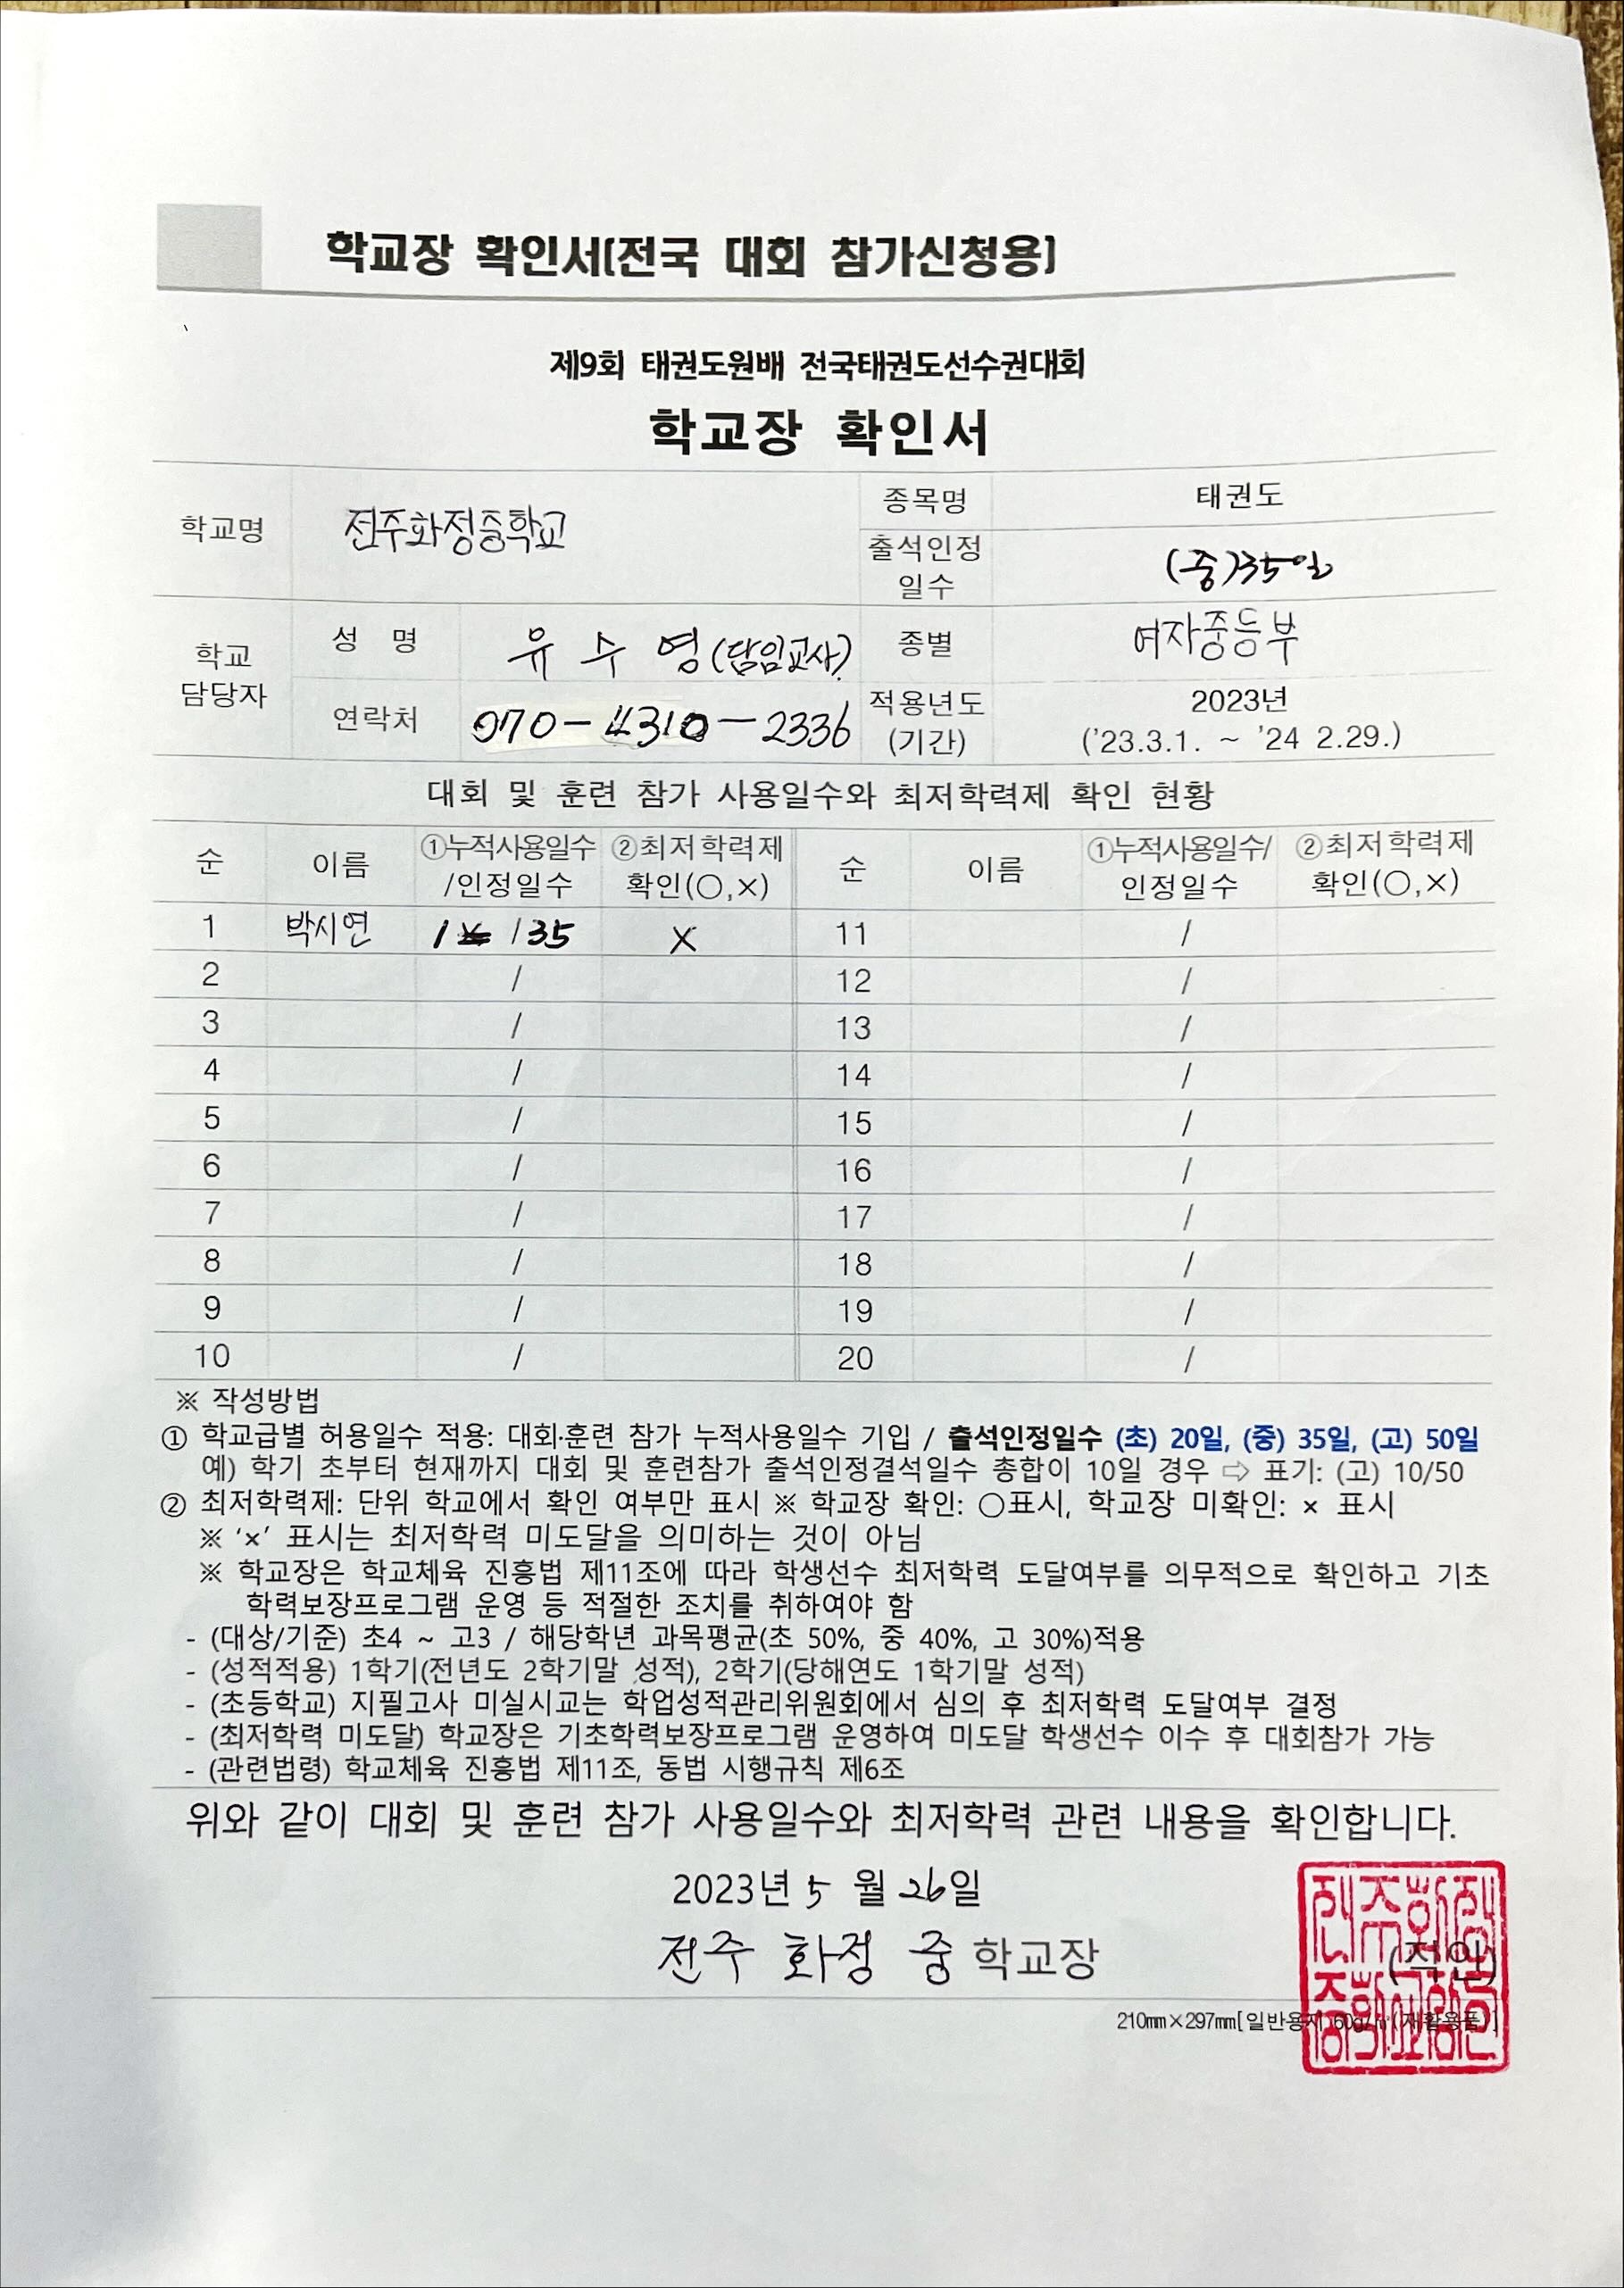 학교장 확인서(전국 대회 참가신청용)
제9회 태권도원배 전국태권도선수권대회
학교장 확인서
학교명 전주화정중학교 종목명 태권도
출석인정 일수 (중)35일
학교 담당자 성 명 유수영(담임교사) 종별 여자중등부
연락처 070-4310-2336 적용년도 (기간) 2023년
('23.3.1. ~ '24 2.29.)
대회 및 훈련 참가 사용일수와 최저학력제 확인 현황
순 이름 ①누적사용일수 /인정일수 ②최저학력제 확인(○,×) 순 이름 ①누적사용일수/ 인정일수 ②최저학력제 확인(○,×)
1 박시연 1 / 35 × 11 /
2 / 12 /
3 / 13 /
4 / 14 /
5 / 15 /
6 / 16 /
7 / 17 /
8 / 18 /
9 / 19 /
10 / 20 /
※ 작성방법
① 학교급별 허용일수 적용: 대회·훈련 참가 누적사용일수 기입 / 출석인정일수 (초) 20일, (중) 35일, (고) 50일
예) 학기 초부터 현재까지 대회 및 훈련참가 출석인정결석일수 총합이 10일 경우 ⇨ 표기: (고) 10/50
② 최저학력제: 단위 학교에서 확인 여부만 표시 ※ 학교장 확인: ○표시, 학교장 미확인: × 표시
※ '×' 표시는 최저학력 미도달을 의미하는 것이 아님
※ 학교장은 학교체육 진흥법 제11조에 따라 학생선수 최저학력 도달여부를 의무적으로 확인하고 기초
학력보장프로그램 운영 등 적절한 조치를 취하여야 함
- (대상/기준) 초4 ~ 고3 / 해당학년 과목평균(초 50%, 중 40%, 고 30%)적용
- (성적적용) 1학기(전년도 2학기말 성적), 2학기(당해연도 1학기말 성적)
- (초등학교) 지필고사 미실시교는 학업성적관리위원회에서 심의 후 최저학력 도달여부 결정
- (최저학력 미도달) 학교장은 기초학력보장프로그램 운영하여 미도달 학생선수 이수 후 대회참가 가능
- (관련법령) 학교체육 진흥법 제11조, 동법 시행규칙 제6조
위와 같이 대회 및 훈련 참가 사용일수와 최저학력 관련 내용을 확인합니다.
2023년 5 월 26일
전주 화정 중 학교장 (직인)
210㎜×297㎜[일반용지 60g/㎡(재활용품)]